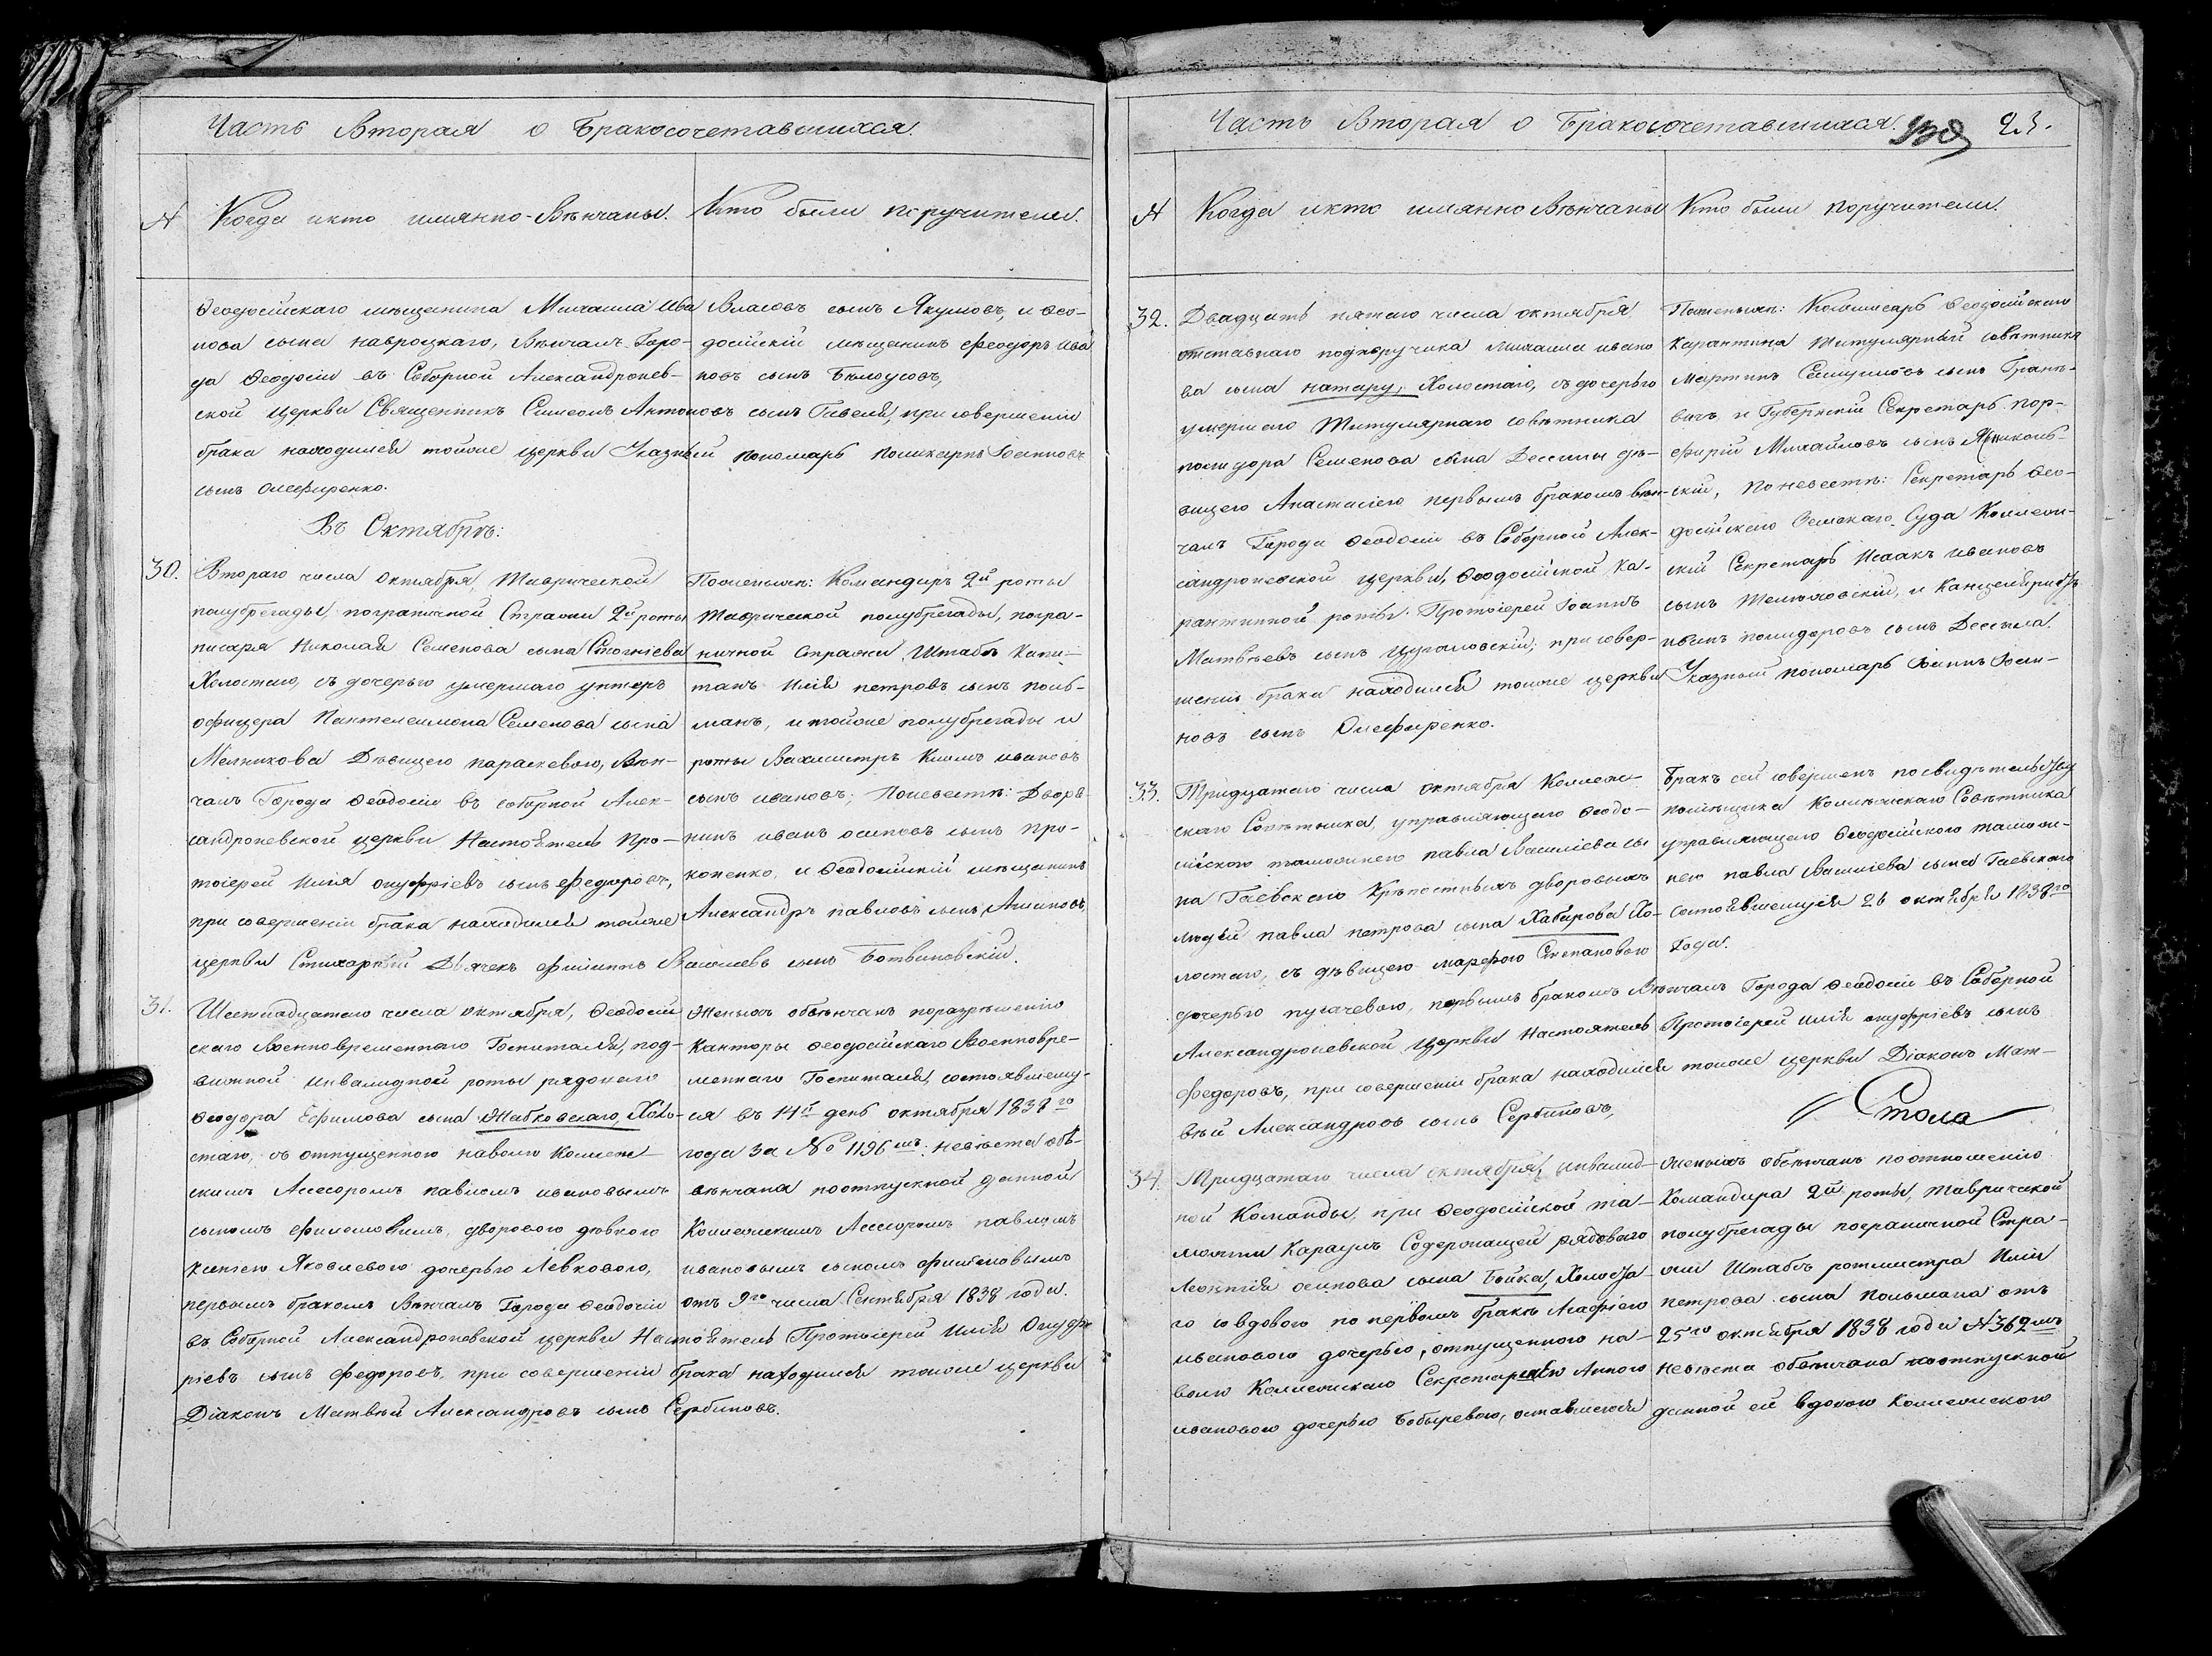 Часть Вторая о Бракосочетавшихся.
№ Когда икто имянно Вѣнчаны. Кто были поручители.
Ѳеодосійскаго мѣщанина Михаила Ива
нова сына навроцкаго, Вѣнчалъ Горо-
да Ѳеодосіи въ Соборной Александронев-
ской церкви Священникъ Симеонъ Антоновъ сынъ при совершеніи
брака находился тойже церкви Указный пономарь поликарпъ Іоанновъ
сынъ Олефиренко.
Власовъ сынъ Якумовъ, и Ѳео-
досійскій мѣщанинъ Феодоръ Ива
новъ сынъ Бѣлоусовъ,
Въ Октябрѣ:
30. Втораго числа Октября, Таврической
полубрегады, пограничной Стражи 2й роты
писаря Николая Семенова сына Стогніева
Холостаго, съ дочерью умершаго унтеръ
офицера Пантелеимона Семенова сына
Мелникова Дѣвицею параскевою, Вѣн-
чалъ Города Ѳеодосіи въ соборной Алек-
сандроневской церкви Настоятель Про-
тоіерей Илія онуфріевъ сынъ Федоровъ,
при совершеніи брака находился тойже
церкви Стихарный Дьячекъ филиппъ Васильевъ сынъ Ботвиновскій.
Поженихѣ: Командиръ 2й роты
Таврической полубрегады, погра-
ничной Стражи Штабъ Капи-
танъ Илія петровъ сынъ поль-
манъ, и тойже полубрегады и
роты Вахмистръ Климъ ивановъ
сынъ ивановъ; Поневестѣ: Дворя
нинъ иванъ осиповъ сынъ про-
копенко, и Ѳеодосійскій мѣщанинъ
Александръ павловъ сынъ
31. Шестнадцатаго числа октября, Ѳеодосій
скаго Военновременнаго Госпиталя, под-
вижной инвалидной роты рядоваго
Ѳеодора Ефимова сына Жабковскаго, Холо-
стаго, съ отпущенною наволю Коллеж-
скимъ Асесоромъ павломъ ивановымъ
сыномъ дворовою дѣвкою
Ксенею Яковлевою дочерью Левковою,
первымъ бракомъ Вѣнчалъ Города Ѳеодосіи
въ Соборной Александроневской церкви Настоятель Протоіерей Илія Онуф
ріевъ сынъ Федоровъ, при совершеніи брака находился тойже церкви
Діаконъ Матвѣй Александровъ сынъ Сербиновъ.
Женихъ обвѣнчанъ поразрѣшенію
Канторы Ѳеодосійскаго Военновре-
меннаго Госпиталя, состоявшему-
ся въ 14й день октября 1838го
года за № 1196мъ. невѣста обѣ-
вѣнчана поотпускной данной
Коллежскимъ Асесоромъ павломъ
ивановымъ сыномъ
отъ 9го числа Сентября 1838 года.
Часть Вторая о Бракосочетавшихся. 23.
№ Когда икто имянно Вѣнчаны Кто были поручители.
32. Двадцать пятаго числа октября
отставнаго подпоручика михаила ивано
ва сына натару, Холостаго, съ дочерью
умершаго Титулярнаго совѣтника
полидора Семенова сына Дессилы дѣ-
вицею Анастасіею первымъ бракомъ вѣн-
чалъ Города Ѳеодосіи въ Соборной Алек-
сандроневской церкви, Ѳеодосійской Ка-
рантинной роты Протоіерей Іоаннъ
Матвѣевъ сынъ при совер-
шеніи брака находился тойже церкви Указный пономарь Іоаннъ Іоан-
новъ сынъ Олефиренко.
Поженихѣ: Коммисаръ Ѳеодосійскаго
Карантина титулярный совѣтникъ
Мартинъ сынъ
вичъ и Губернскій Секретарь пор-
фирій Михайловъ сынъ
скій, Поневестѣ: Секретарь Ѳео-
досійскаго Земскаго Суда Коллеж-
скій Секретарь Исаакъ ивановъ
сынъ и Канцеляристъ
иванъ полидоровъ сынъ Дессила.
33. Тридцатаго числа октября Коллеж-
скаго Совѣтника, управляющаго Ѳеодо-
сійскою таможнею павла Василіева сы
на Гаевскаго Крѣпостныхъ дворовыхъ
людей павла петрова сына Хабарова Хо-
лостаго, съ дѣвицею марфою Степановою
дочерью пугачевою, первымъ бракомъ Вѣнчалъ Города Ѳеодосіи въ Соборной
Александроневской Церкви Настоятель Протоіерей илія онуфріевъ сынъ
Федоровъ, при совершеніи брака находился тойже церкви Діаконъ Мат-
вѣй Александровъ сынъ Сербиновъ,
Бракъ сей совершенъ посвидѣтельству
помѣщика Коллежскаго Совѣтника
управляющаго Ѳеодосійскою таможн-
нею павла Василіева сына Гаевскаго
состоявшемуся 26 октября 1838го
Года.
34. Тридцатаго числа октября, инвалид-
ной Команды, при Ѳеодосійской та-
можни Караулъ Содержащей рядоваго
Леонтія осипова сына Бойка, Холоста
го совдовою по первомъ бракѣ Агафіею
ивановою дочерью, отпущенною на-
волю Коллежскаго Секретаря Анною
ивановою дочерью Бобыревою, оставшеюся
Женихъ обвѣнчанъ поотношенію
Командира 2й роты, таврической
полубрегады пограничной Стра-
жи Штабъ ротмистра Иліи
петрова сына польмана отъ
25го октября 1838 года №362мъ
Невѣста обвѣнчана поотпускной
данной ей вдовою Коллежскаго